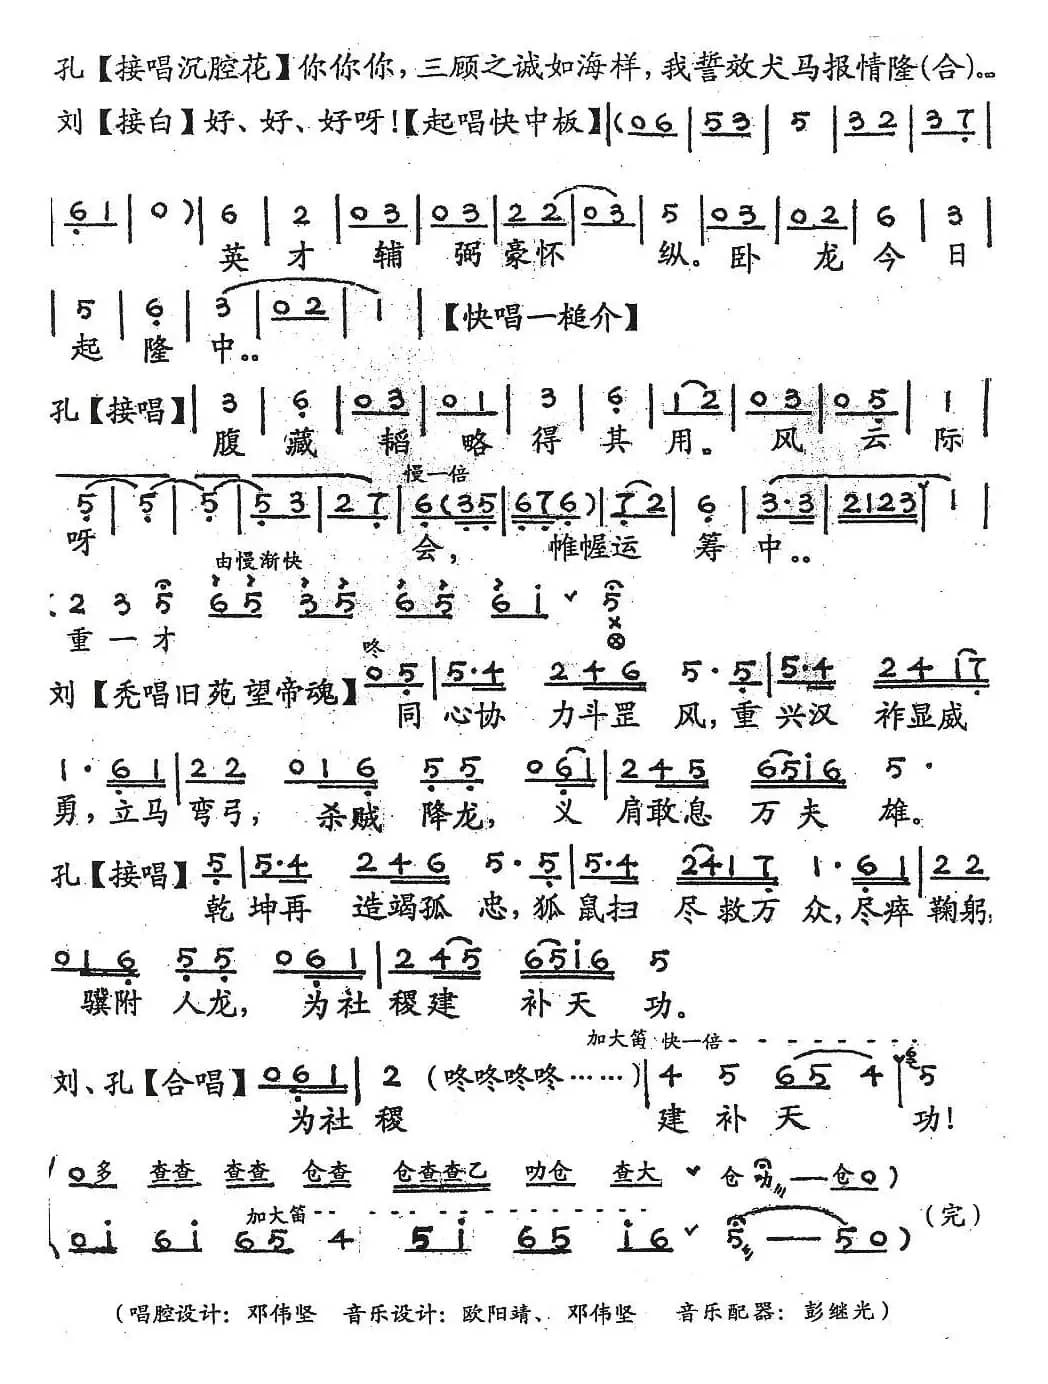 孔【接唱沉腔花】你你你，三顾之诚如海样，我誓效犬马报情隆(合)。。
刘【接白】好、好、好呀！【起唱快中板】|(0 6 | 5 3 | 5 | 3 2 | 3 7 |
| 6 1 | 0 ) | 6 | 2 | 0 3 | 0 3 | 2 2 | 0 3 | 5 | 0 3 | 0 2 | 6 | 3 |
英 才 辅 弼 豪怀 纵。卧 龙 今 日
| 5 | 6 | 3 | 0 2 | 1 | 【快唱一槌介】
起 隆 中。。
孔【接唱】| 3 | 6 | 0 3 | 0 1 | 3 | 6 | 1 2 | 0 3 | 0 5 | 1 |
腹 藏 韬 略 得 其 用。 风 云 际
慢一倍
5 | 5 | 5 | 5 3 | 2 7 | 6 (3 5 | 6 7 6 ) | 7 2 | 6 | 3·3 | 2123 | 1 |
呀 会， 帷幄运 筹 中。。
由慢渐快
2 3 5 6 5 3 5 6 5 6 i 5
重 一 才 × ⊗
咚
刘【秃唱旧苑望帝魂】0 5 | 5·4 2 4 6 5·5 | 5·4 2 4 1 7
同 心协 力斗罡 风，重 兴汉 祚显威
1· 6 1 | 2 2 0 1 6 5 5 0 6 1 | 2 4 5 6 5 i 6 5·
勇，立马 弯弓， 杀贼 降龙， 义 肩敢息 万 夫 雄。
孔【接唱】5 | 5·4 2 4 6 5·5 | 5·4 2 4 1 7 1·6 1 | 2 2
乾 坤再 造竭孤 忠，狐 鼠扫 尽 救万 众，尽瘁 鞠躬；
0 1 6 5 5 0 6 1 | 2 4 5 6 5 i 6 5
骥附 人龙， 为社 稷建 补 天 功。
加大笛 快一倍
刘、孔【合唱】0 6 1 | 2 (咚咚咚咚……) | 4 5 6 5 4 5
为社 稷 建 补 天 功！
( 0多 查查 查查 仓查 仓查查乙 叻仓 查大 仓 叻——仓0 )
加大笛
( 0 i 6 i 6 5 4 5 i 6 5 i 6 5——5 0 )
（完）
（唱腔设计：邓伟坚 音乐设计：欧阳靖、邓伟坚 音乐配器：彭继光）